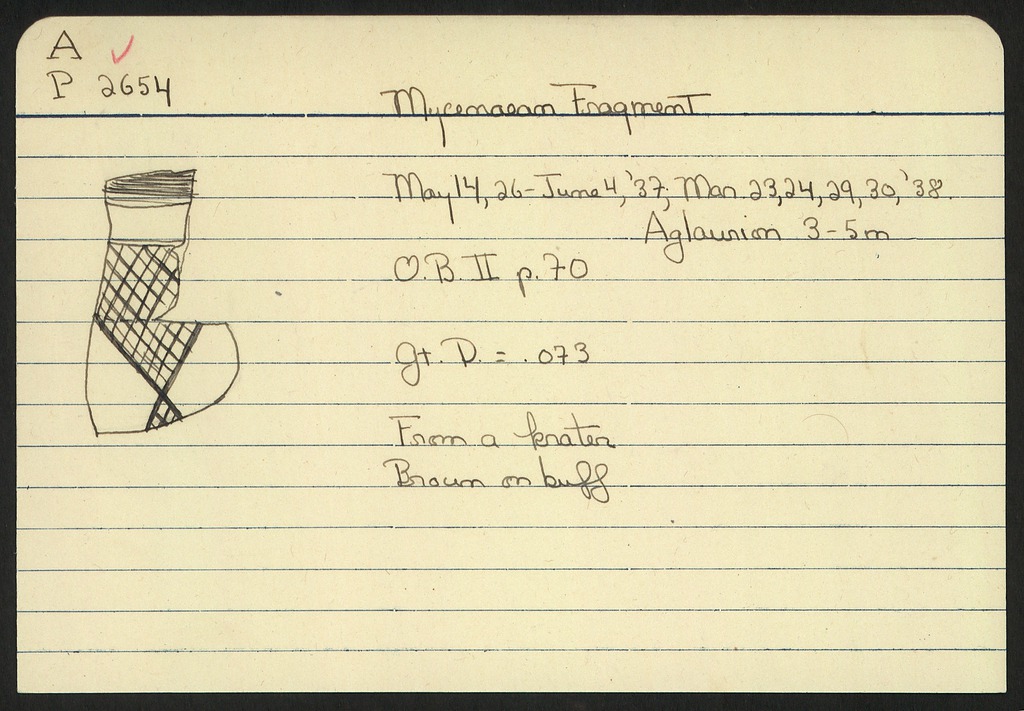 A ✓
P 2654
Mycenaean Fragment
May 14, 26 - June 4, '37; Mar. 23, 24, 29, 30, '38.
Aglaurion 3-5m
O.B. II p. 70
Gt. D. = .073
From a krater
Brown on buff